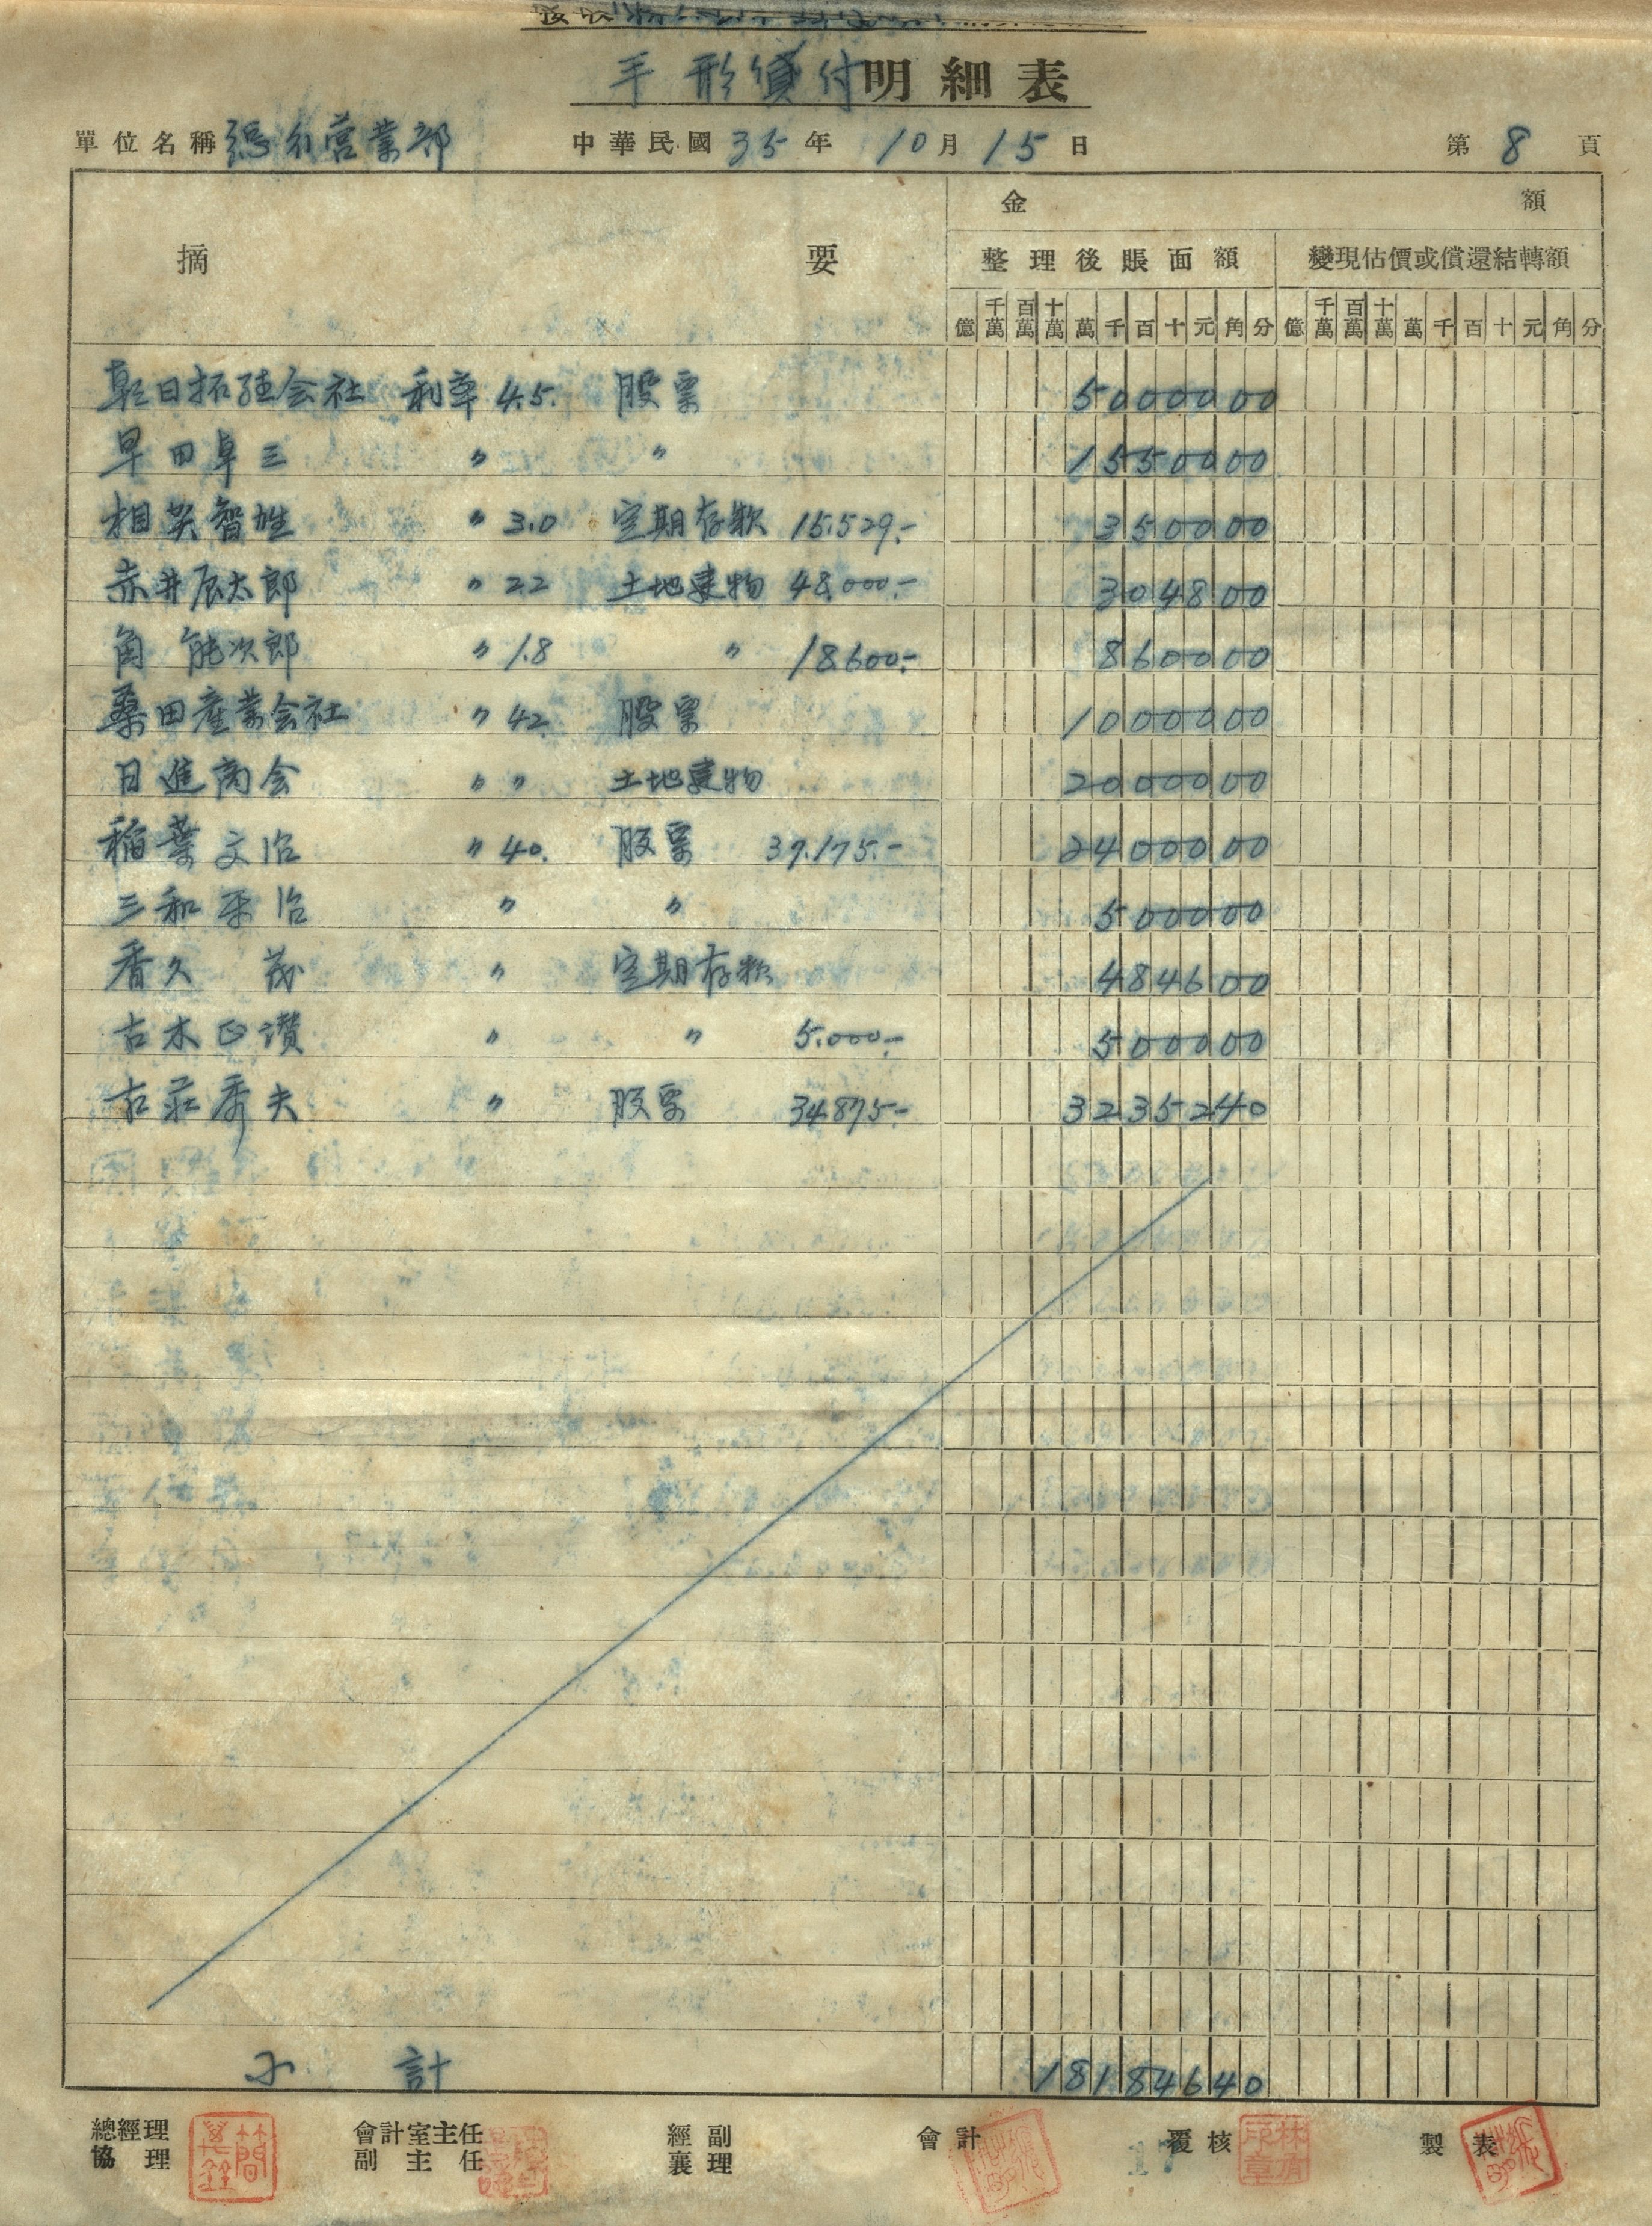 手形貸付明細表
單位名稱 總行営業部 中華民國35年10月15日 第8頁
摘要 金額
整理後賬面額 變現估價或償還結轉額
億 千萬 百萬 十萬 萬 千 百 十 元 角 分 億 千萬 百萬 十萬 萬 千 百 十 元 角 分
日拓殖会社 利率 4.5. 股票 5000000
早田卓三 〃 〃 1550000
相英智性 〃 3.0 定期存款 15.529.- 350000
赤井辰太郎 〃 2.2 土地建物 48.000.- 304800
角 能次郎 〃 1.8 〃 18.600.- 860000
桑田産業会社 〃 4.2. 股票 1000000
日進商会 〃 〃 土地建物 2000000
稲葉文治 〃 4.0. 股票 37.175.- 2400000
三和平治 〃 〃 500000
香久 茂 〃 定期存款 484600
古木正讃 〃 〃 5.000.- 500000
古荘秀夫 〃 股票 34.875.- 3235240
小計 18184640
總經理 會計室主任 經副 會計 覆核 製表
協理 副主任 襄理
17